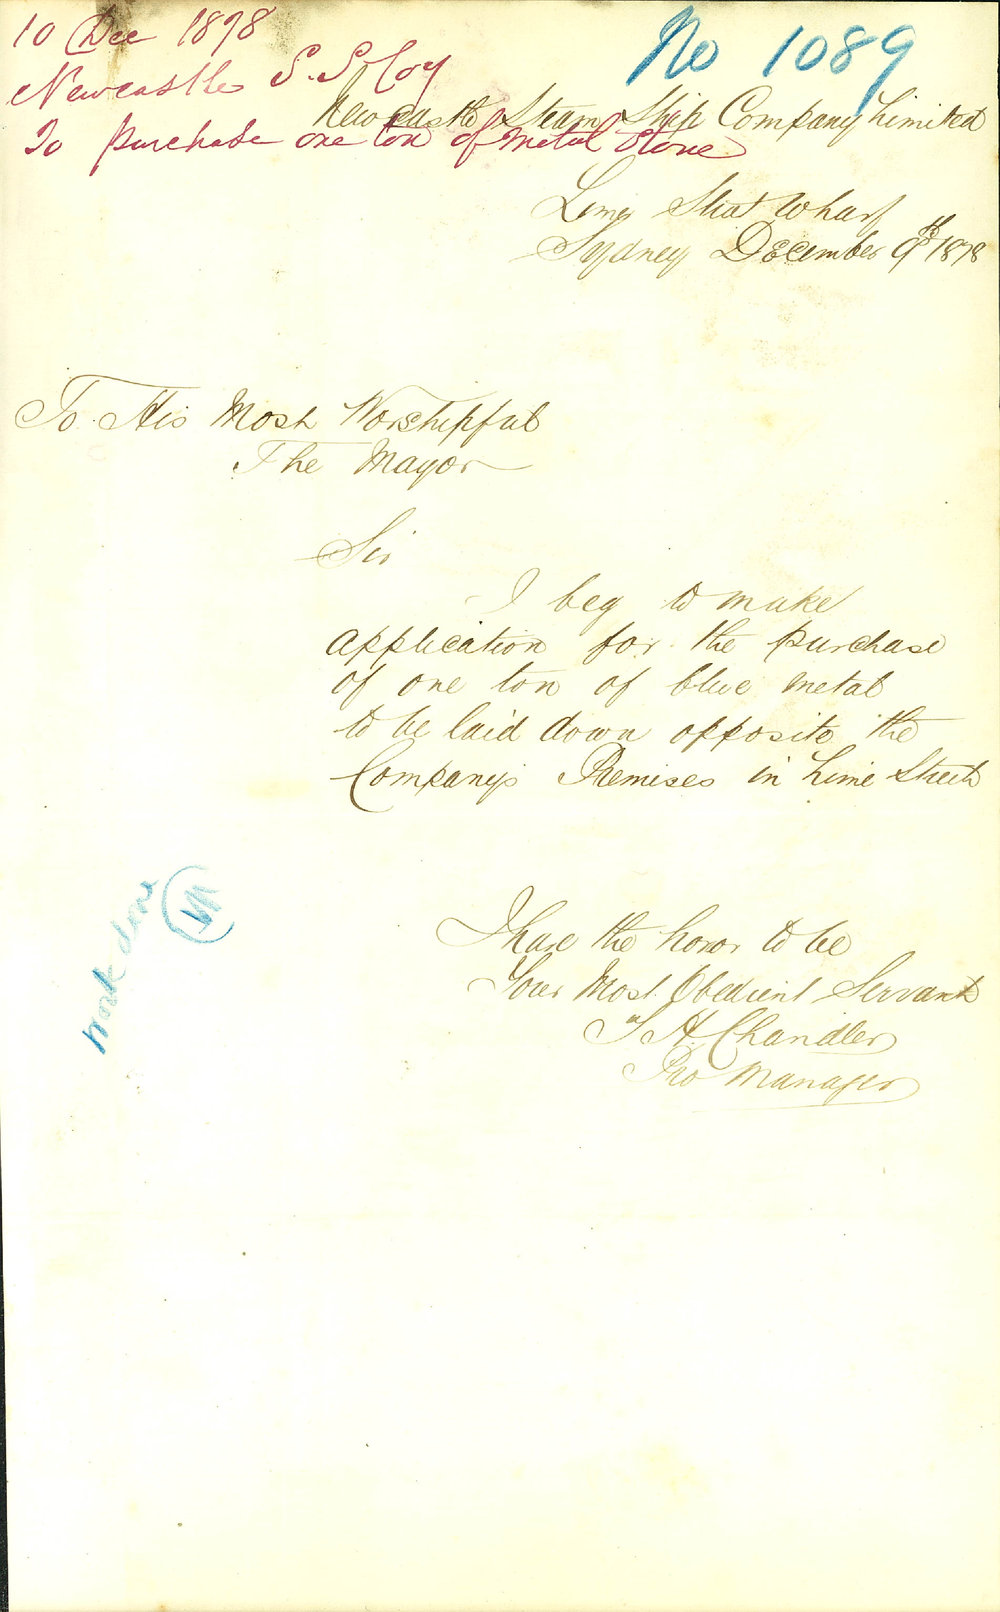 10 Dec 1878
No 1089
Newcastle S. S. Coy
To purchase one ton of metal stone
Newcastle Steam Ship Company Limited
Lime Street Wharf
Sydney December 9th 1878
To His Most Worshipful
The Mayor
Sir
I beg to make
application for the purchase
of one ton of blue metal
to be laid down opposite the
Company's Premises in Lime Street
I have the honor to be
Your Most Obedient Servant
H Chandler
Pro Manager
Work done